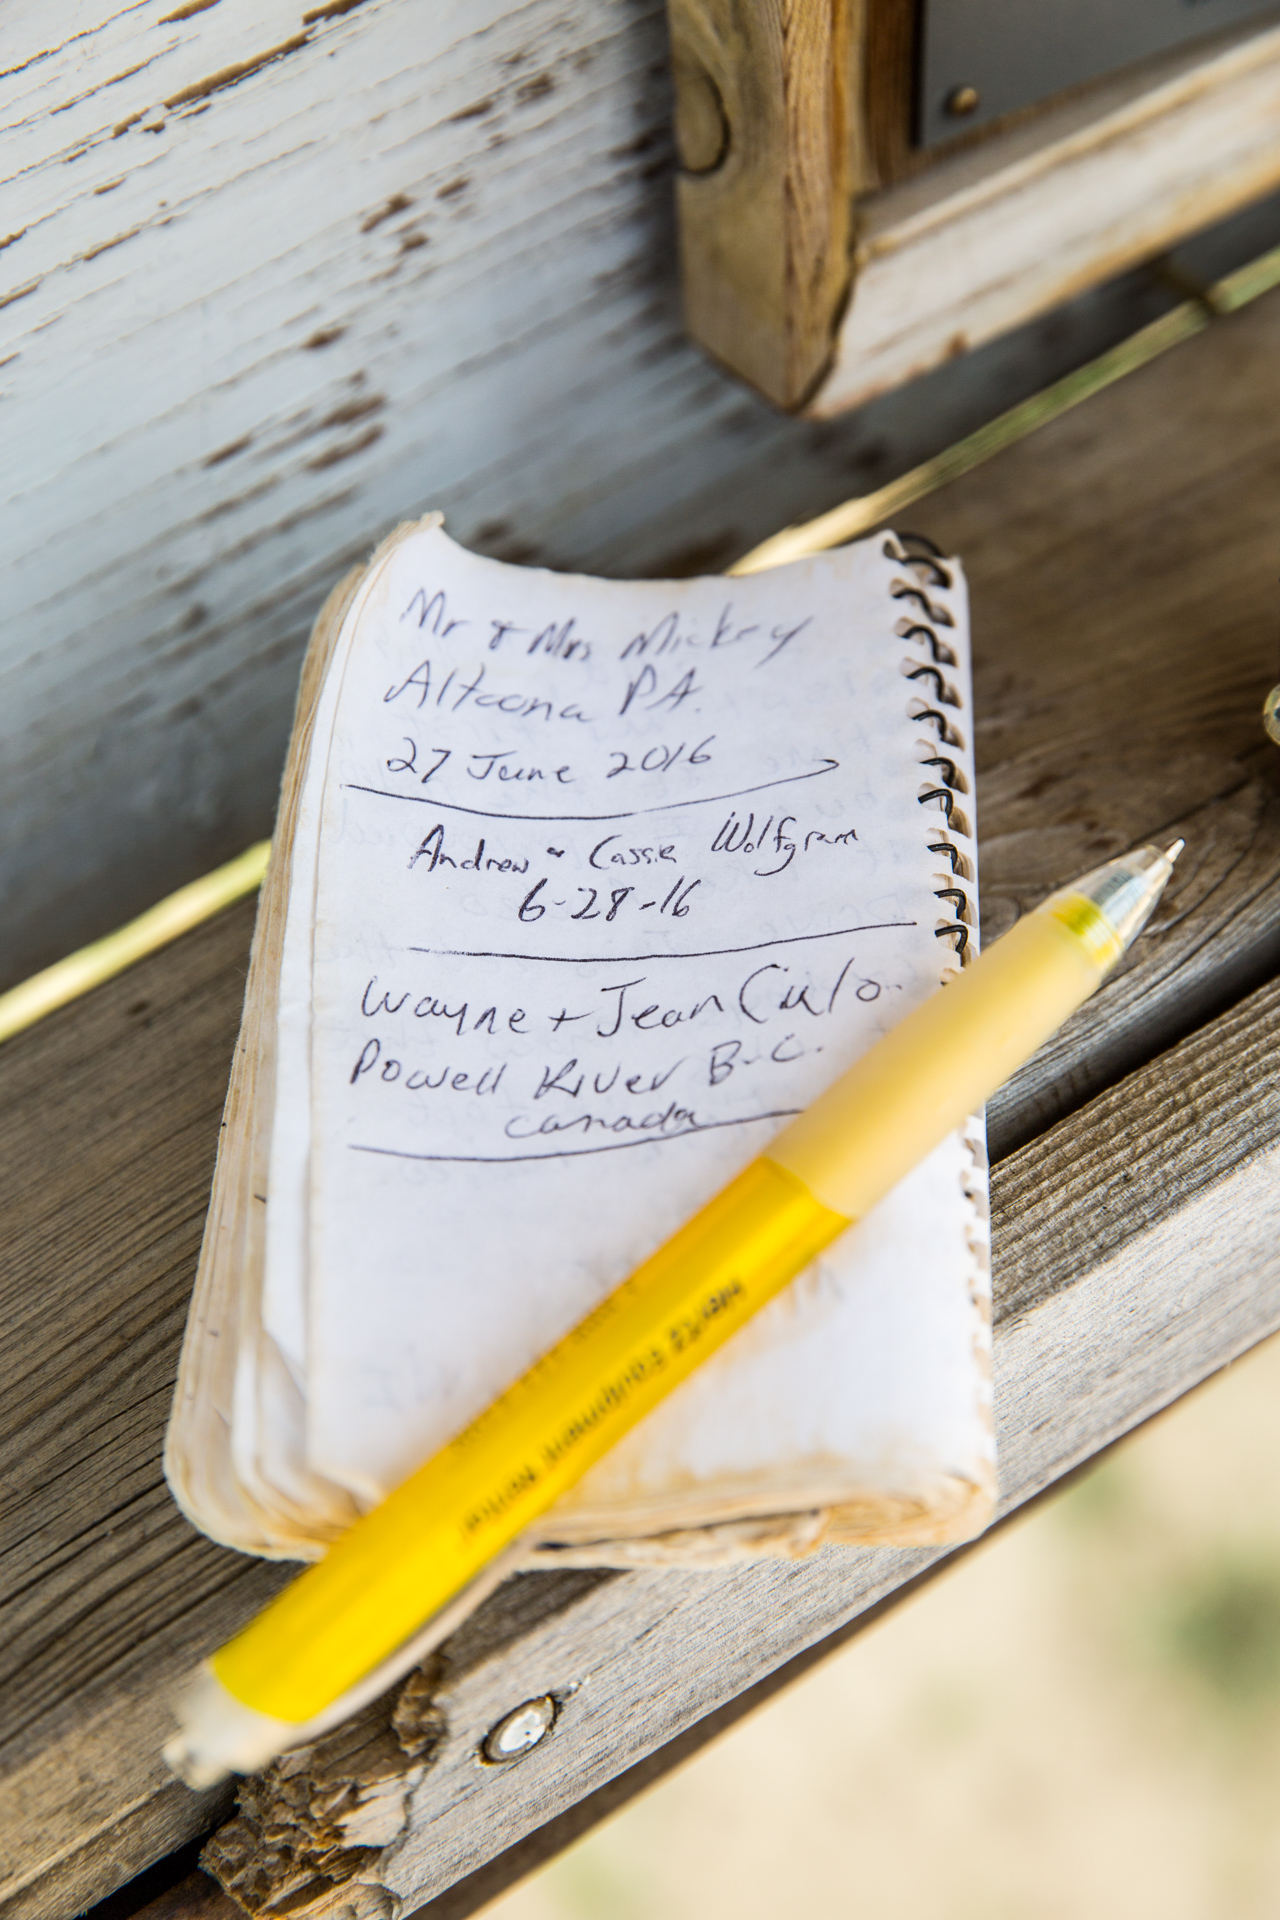 Mr & Mrs Mickey
Altoona PA.
27 June 2016
Andrew & Cassie Wolfgram
6-28-16
Wayne + Jean
Powell River B.C.
canada
Equipment